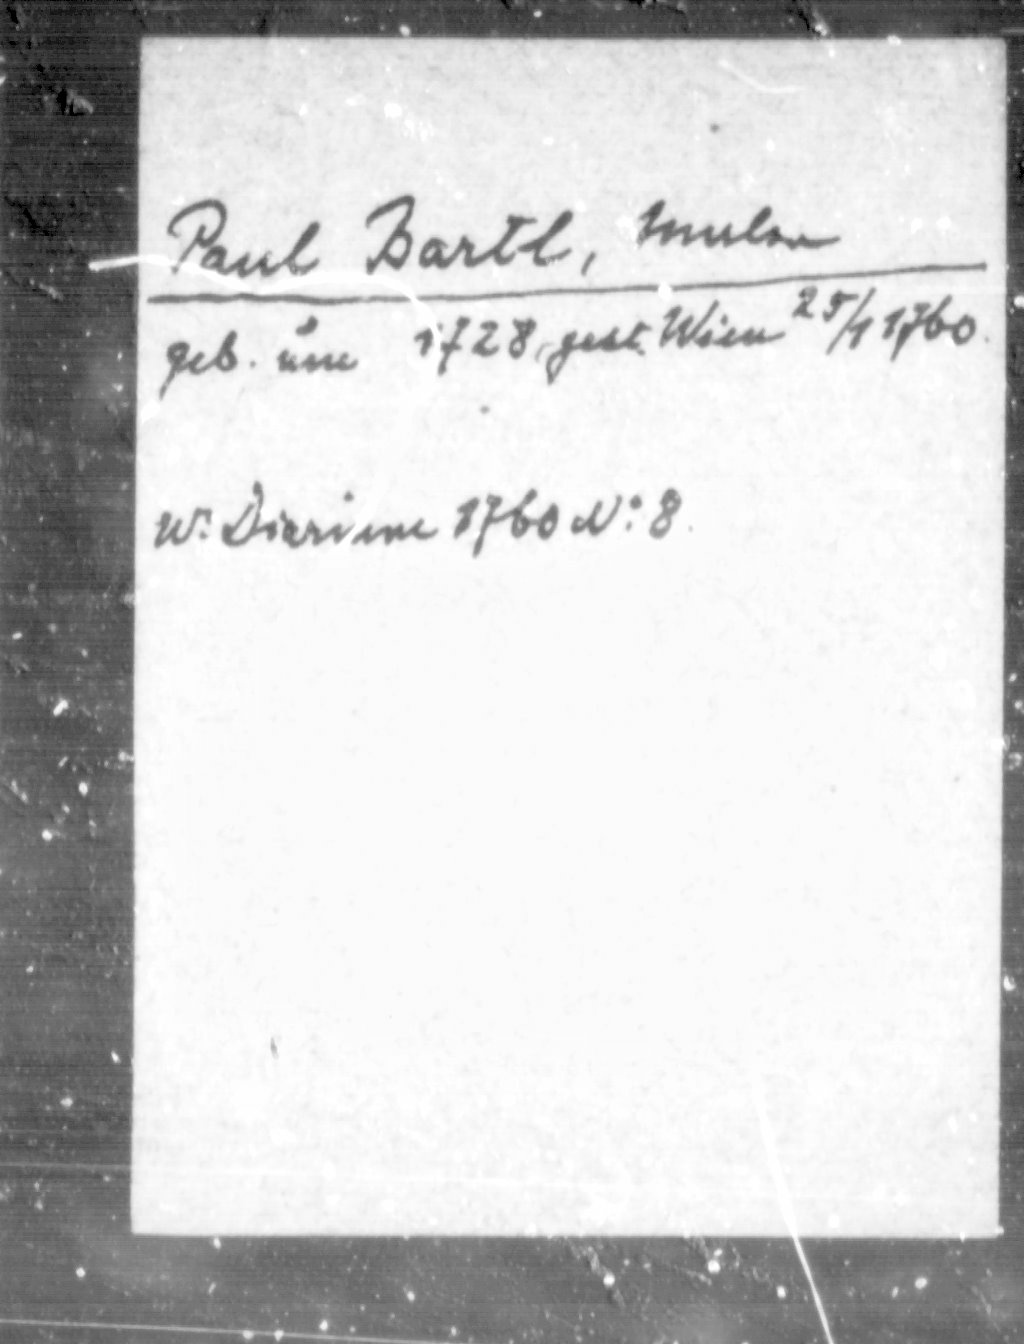 Paul Bartl, Maler
geb. um 1728, gest. Wien 25/1 1760.
W. Diarium 1760 No. 8.